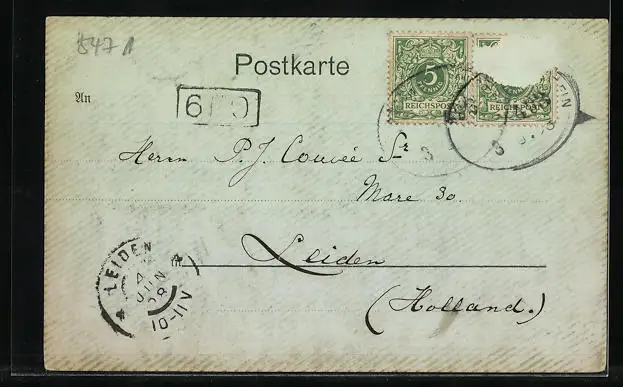 547
Postkarte
An
5
PFENNIG
REICHSPOST
REICHSPOST
Herrn P. J. Couvée Sr
Mare 30.
Leiden
(Holland.)
LEIDEN
4
JUN
98
10-11V